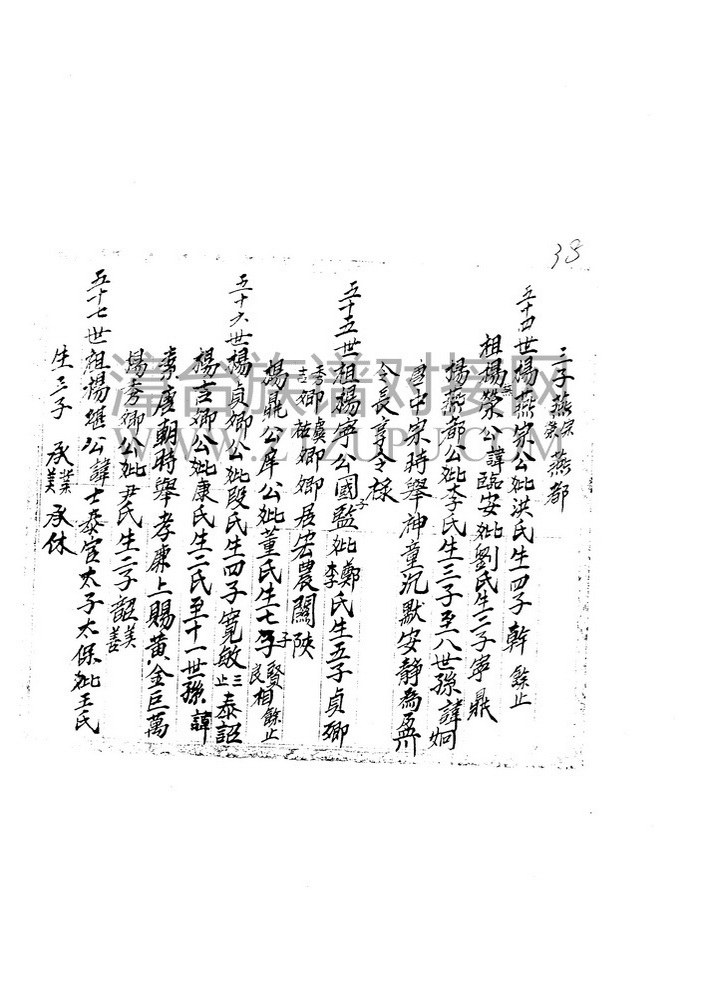 38
三子燕宗燕榮燕都
五十四世楊燕宗公妣洪氏生四子幹餘止
祖楊燕榮公諱臨安妣劉氏生二子寧鼎
楊燕都公妣李氏生三子至八世孫諱炯
唐中宋時舉神童沉默安靜為盈川
令長享令樣
五十五世祖楊寧公國子監妣鄭李氏生五子貞卿
秀卿吉卿虞卿祐卿居宏農關陝
楊鼎公庠公妣董氏生七子子賢良相餘止
五十六世楊貞卿公妣段氏生四子寬敏三止泰詔
楊吉卿公妣康氏生二氏至十一世孫諱
唐朝時舉孝廉上賜黃金巨萬
楊秀卿公妣尹氏生二子韶美善
五十七世祖楊公諱士泰官太子太保妣王氏
生三子承業承美承休
漳台族谱对接网
WWW.ZTZUPU.COM